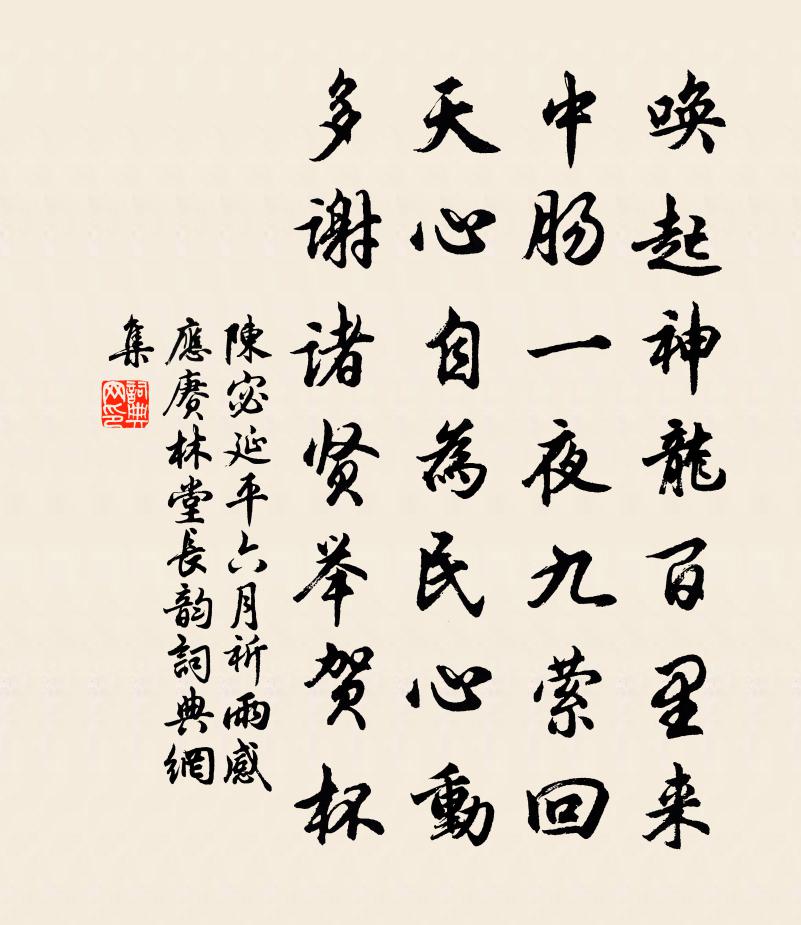 唤起神龍百里来
中肠一夜九萦回
天心自為民心動
多谢诸贤举贺杯
陳宓延平六月祈雨感
應赓林堂長韵詞典網
集
詞典网印